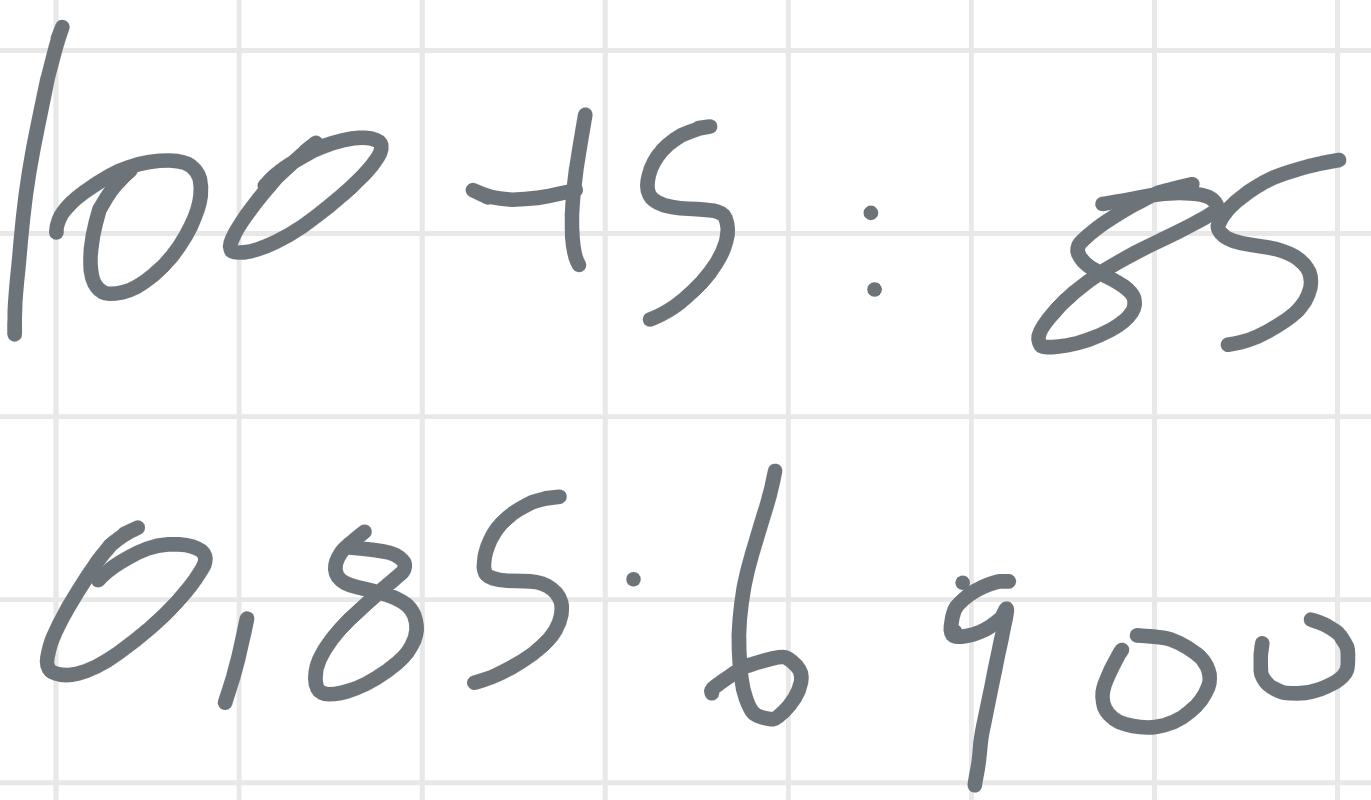 100-15 : 85
0,85 · 6 900